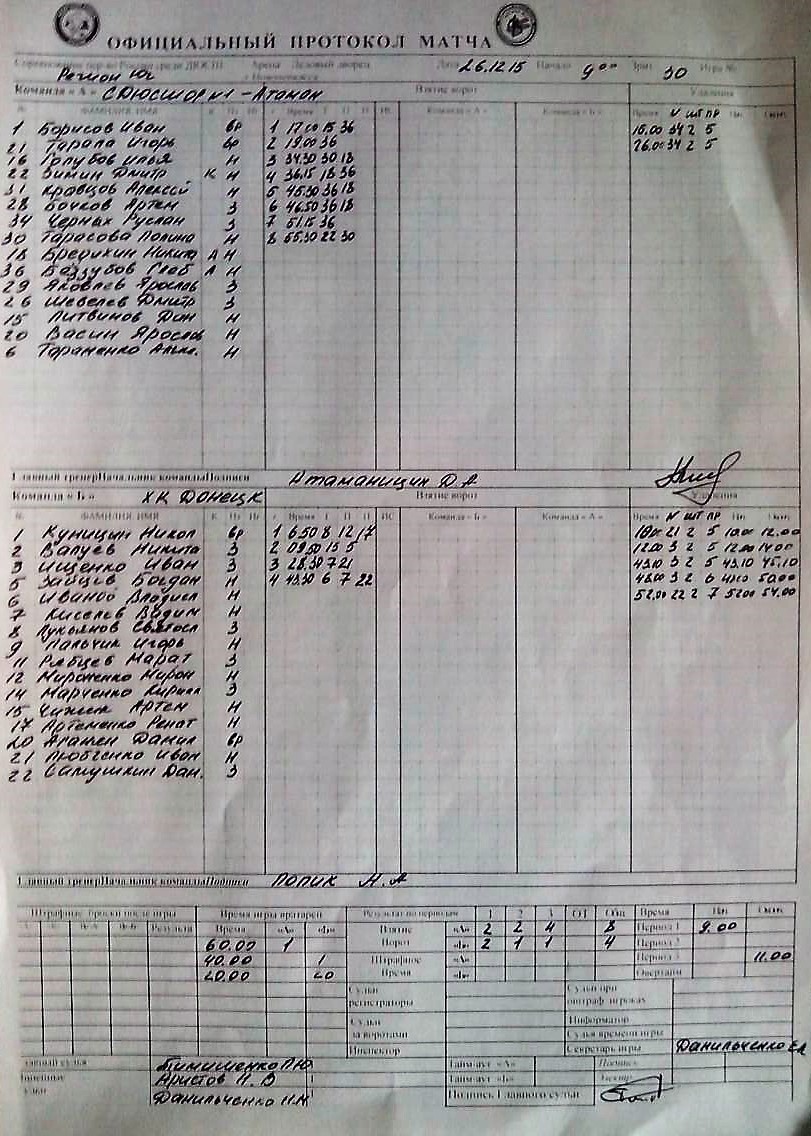 ОФИЦИАЛЬНЫЙ ПРОТОКОЛ МАТЧА
Регион Юг Арена Ледовый дворец Дата 26.12.15 Начало 9 00 Зрит. 30 Игра №
Команда «А» СДЮСШОР №1 - Атаман Взятие ворот Удаления
№ ФАМИЛИЯ ИМЯ К Время Г П П ИС Команда «А» Команда «Б» Время № ШТ ПР Нач. Окон.
1 Борисов Иван вр 1 17.00 15 36 15.00 34 2 5
21 Тарала Игорь вр 2 19.00 36 26.00 34 2 5
16 Голубов Илья Н 3 34.30 30 18
22 Зимин Дмитр К Н 4 36.15 18 36
31 Кравцов Алексей Н 5 45.30 36 18
28 Бочков Артем З 6 46.50 36 18
34 Черных Руслан З 7 51.15 36
30 Тарасова Полина Н 8 55.30 22 30
18 Бредихин Никита А Н
36 Баззубов Глеб А Н
29 Яковлев Ярослав З
26 Шевелев Дмитр З
15 Литвинов Дан Н
20 Васин Ярослав Н
6 Тараненко Н
Главный тренер Начальник команды Подписи Атаманицин Д.А
Команда «Б» ХК Донецк Взятие ворот Удаления
№ ФАМИЛИЯ ИМЯ К Время Г П П ИС Команда «Б» Команда «А» Время № ШТ ПР Нач. Окон.
1 Куницин Никол вр 1 6.50 8 12 17 21 2 5 10.00 12.00
2 Валуев Никита З 2 09.50 15 5 12.00 3 2 5 12.00 14.00
3 Ищенко Иван З 3 28.30 7 21 43.10 3 2 5 43.10 45.10
5 Зайцев Богдан Н 4 43.30 6 7 22 48.00 3 2 6 50.00
6 Иванов Владисл Н 52.00 22 2 7 52.00 54.00
7 Киселев Вадим Н
8 Лукьянов Святосл З
9 Пальчик Игорь Н
11 Рябцев Марат З
12 Мироненко Мирон Н
14 Марченко Кирилл З
15 Чижик Артем Н
17 Артеменко Ренат Н
20 Данил вр
21 Любченко Иван Н
22 Самушкин Дан. З
Главный тренер Начальник команды Подписи Попик Н.А
Штрафные броски после игры Время игры вратарей Результат по периодам 1 2 3 ОТ Общ Время Нач. Окон.
«А» «Б» Вр-А Вр-Б Результат Время «А» «Б» Взятие «А» 2 2 4 8 Период 1 9.00
60.00 1 Ворот «Б» 2 1 1 4 Период 2
40.00 1 Штрафное «А» Период 3 11.00
20.00 20 Время «Б» Овертайм
Судьи регистраторы Судьи при оштраф. игроках
Судьи за воротами Информатор
Судья времени игры
Инспектор Секретарь игры Данильченко
Главный судья Тимишенко П.Ю Тайм-аут «А» Подпись
Линейные Аристов Н.В Тайм-аут «Б» Секретарь
судьи Данильченко Н.Н Подпись Главного судьи